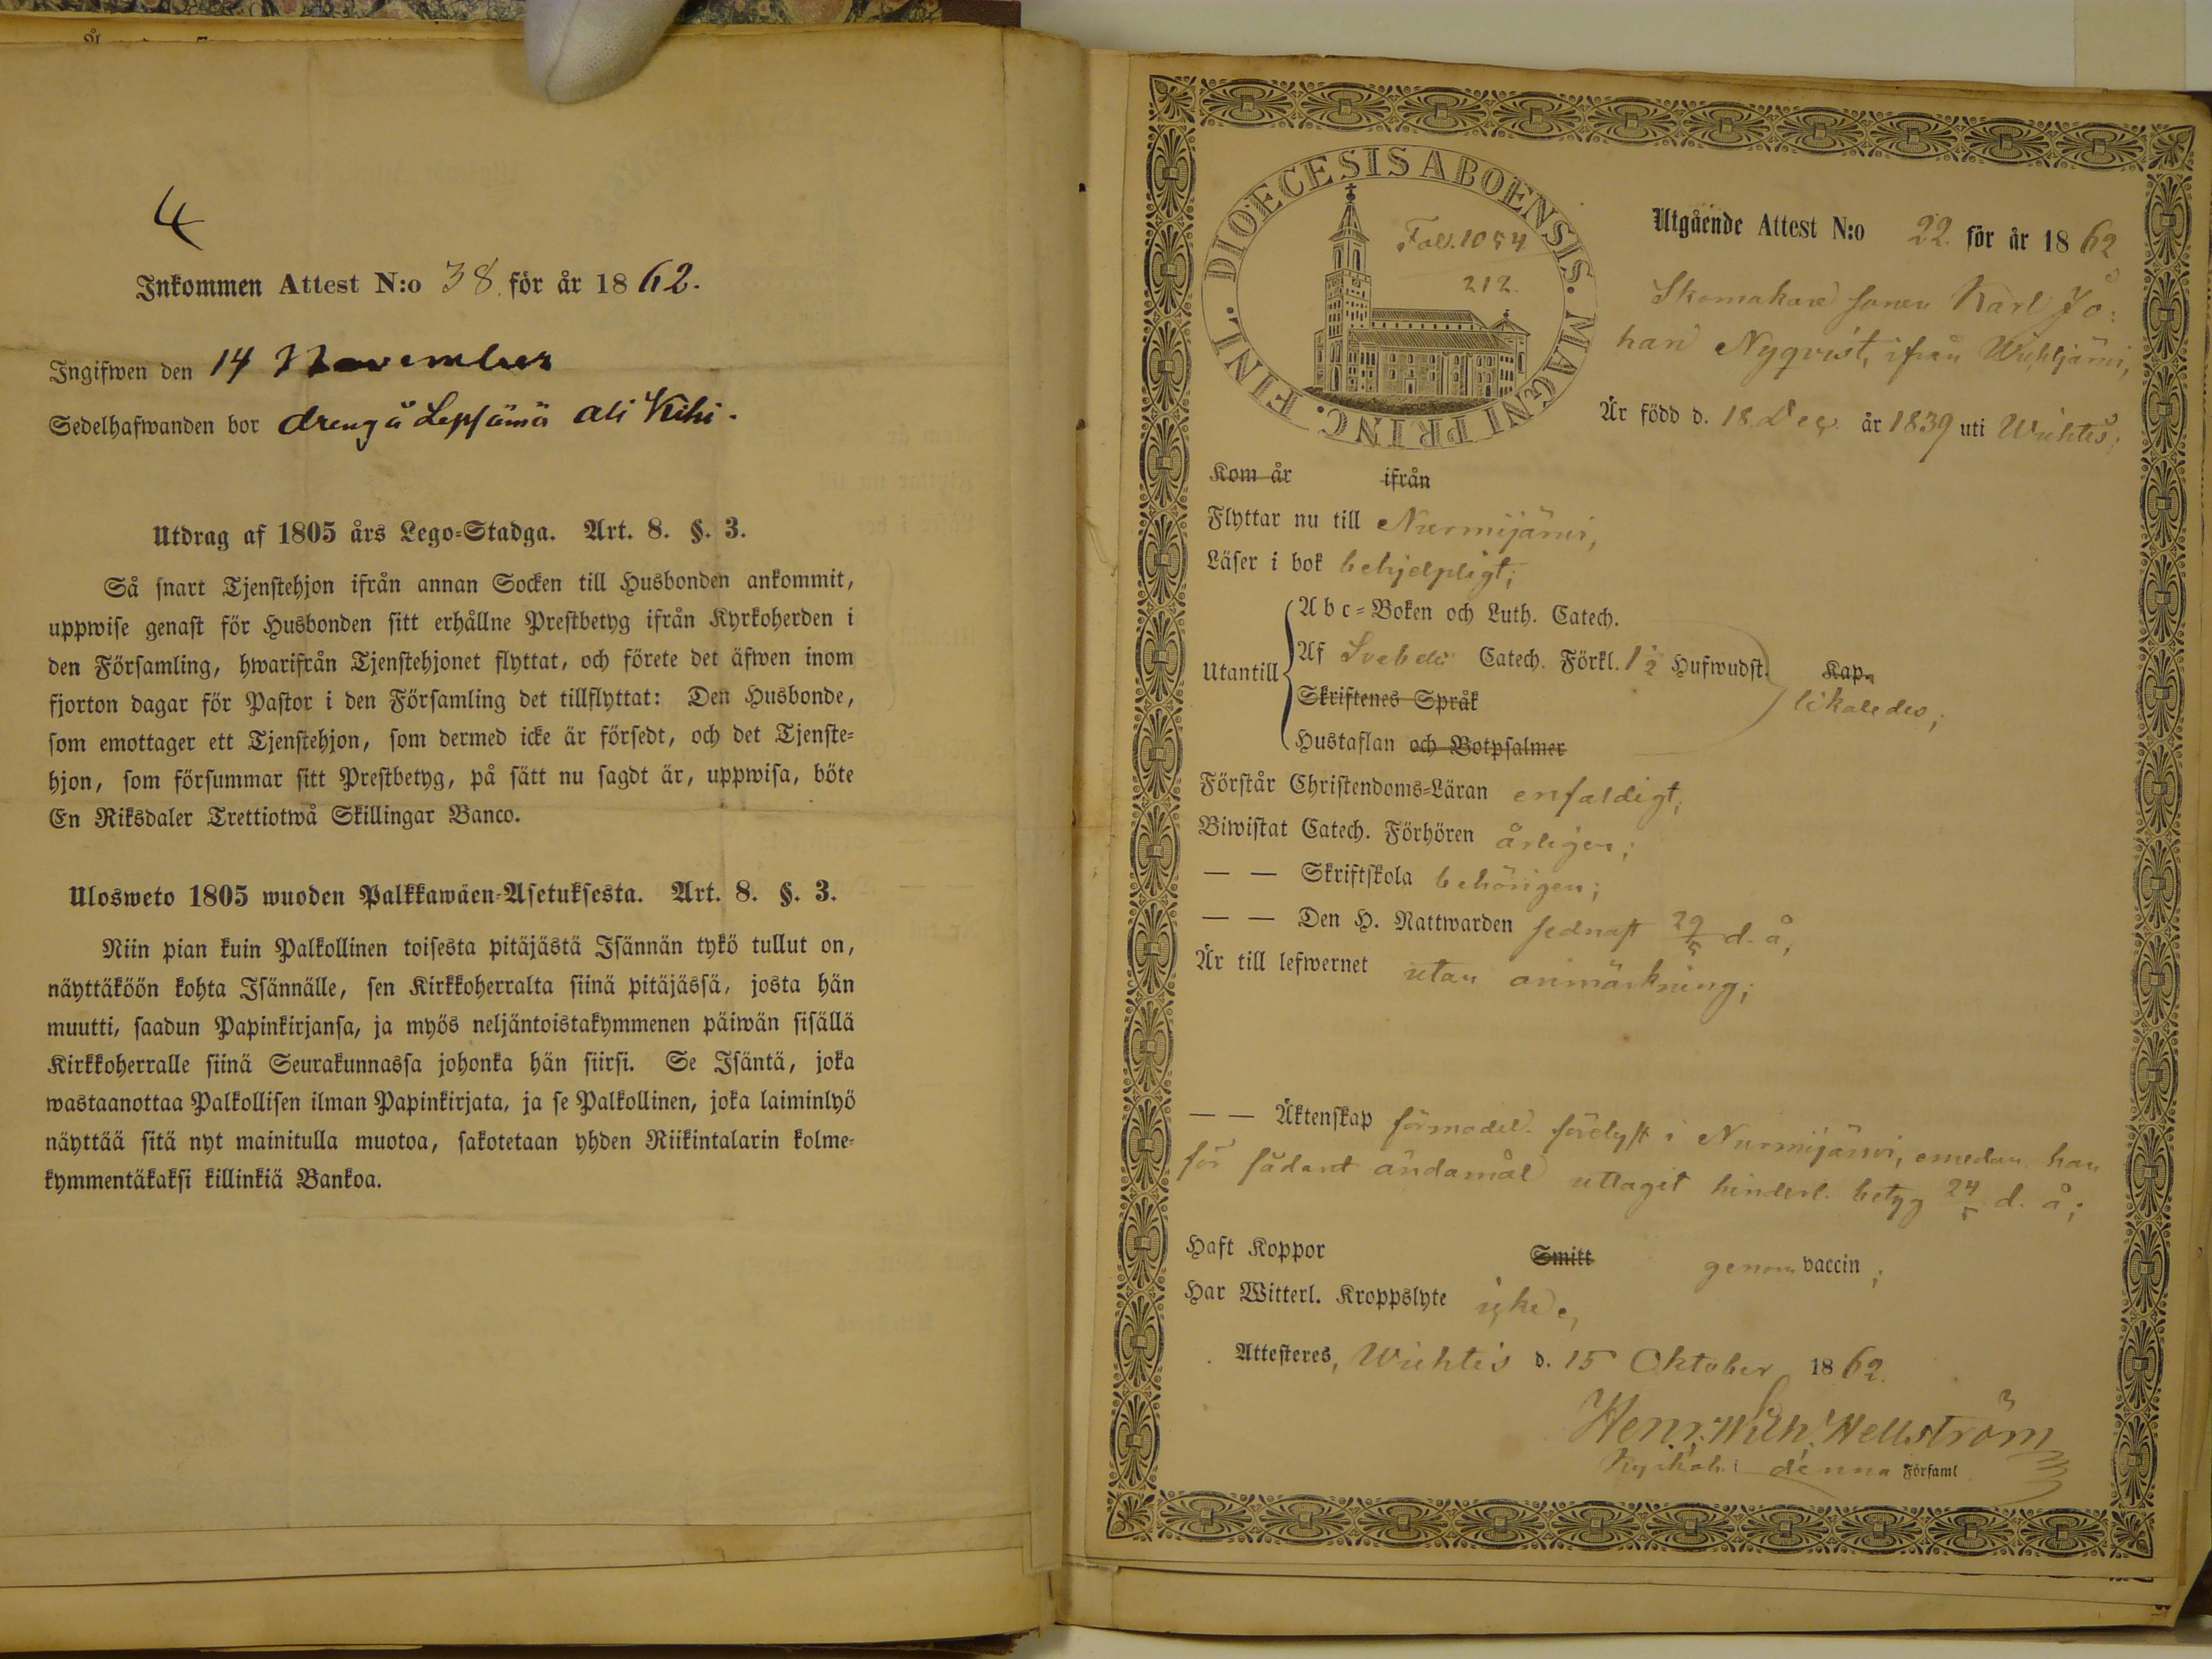 4
Inkommen Attest N:o 38. för år 1862.
Ingifwen den 14 November
Sedelhafwanden bor dreng å Lepsämä ali Kihi.
Utdrag af 1805 års Lego-Stadga. Art. 8. §. 3.
Så snart Tjenstehjon ifrån annan Socken till Husbonden ankommit,
uppwise genast för Husbonden sitt erhållne Prestbetyg ifrån Kyrkoherden i
den Församling, hwarifrån Tjenstehjonet flyttat, och förete det äfwen inom
fjorton dagar för Pastor i den Församling det tillflyttat: Den Husbonde,
som emottager ett Tjenstehjon, som dermed icke är försedt, och det Tjenste-
hjon, som försummar sitt Prestbetyg, på sätt nu sagdt är, uppwisa, böte
En Riksdaler Trettiotwå Skillingar Banco.
Ulosweto 1805 wuoden Palkkawäen-Asetuksesta. Art. 8. §. 3.
Niin pian kuin Palkollinen toisesta pitäjästä Isännän tykö tullut on,
näyttäköön kohta Isännälle, sen Kirkkoherralta siinä pitäjässä, josta hän
muutti, saadun Papinkirjansa, ja myös neljäntoistakymmenen päiwän sisällä
Kirkkoherralle siinä Seurakunnassa johonka hän siirsi. Se Isäntä, joka
wastaanottaa Palkollisen ilman Papinkirjata, ja se Palkollinen, joka laiminlyö
näyttää sitä nyt mainitulla muotoa, sakotetaan yhden Riikintalarin kolme-
kymmentäkaksi killinkiä Bankoa.
DIOECESIS ABOENSIS. MAGNI PRINC. FINL.
Fol. 1054
212.
Utgående Attest N:o 22. för år 1862
Skomakare sonen Karl Jo:
han Nyqvist, ifrån Wuhtjärvi,
Är född d. 18. Dec. år 1839 uti Wichtis;
Kom år ifrån
Flyttar nu till Nurmijärvi,
Läser i bok behjelpligt;
Utantill
Abc-Boken och Luth. Catech.
Af Svebelii Catech. Förkl. 1½ Hufwudst.
Skriftenes Språk
Hustaflan och Botpsalmer
Kap.
likaledes;
Förstår Christendoms-Läran enfaldigt;
Biwistat Catech. Förhören årligen;
— — Skriftskola behörigen;
— — Den H. Nattwarden sednast 29/5 d. å,
Är till lefwernet utan anmärkning;
— — Äktenskap förmodel. förelyst i Nurmijärvi, emedan han
för sådant ändamål uttagit hinderl. betyg 24/5 d. å;
Haft Koppor Smitt genom vaccin;
Har Witterl. Kroppslyte icke,
Attesteres, Wichtis d. 15 Oktober 1862.
Henr. Wilh. Hellström
Kyrkoh. i denna Församl